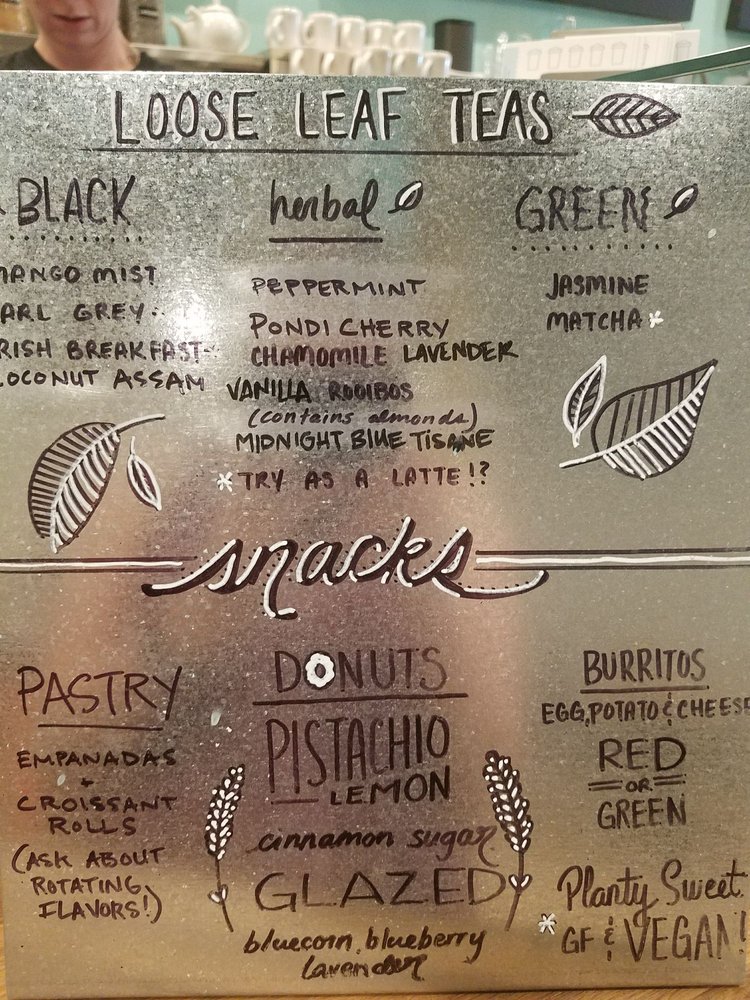 LOOSE LEAF TEAS
BLACK
MANGO MIST
EARL GREY
IRISH BREAKFAST
COCONUT ASSAM
herbal
PEPPERMINT
PONDI CHERRY
CHAMOMILE LAVENDER
VANILLA ROOIBOS
(contains almonds)
MIDNIGHT BLUE TISANE
*TRY AS A LATTE!?
GREEN
JASMINE
MATCHA*
snacks
PASTRY
EMPANADAS
+
CROISSANT
ROLLS
(ASK ABOUT
ROTATING
FLAVORS!)
DONUTS
PISTACHIO
LEMON
cinnamon sugar
GLAZED
bluecorn, blueberry
lavender
BURRITOS
EGG, POTATO & CHEESE
RED
OR
GREEN
Planty Sweet
* GF & VEGAN!